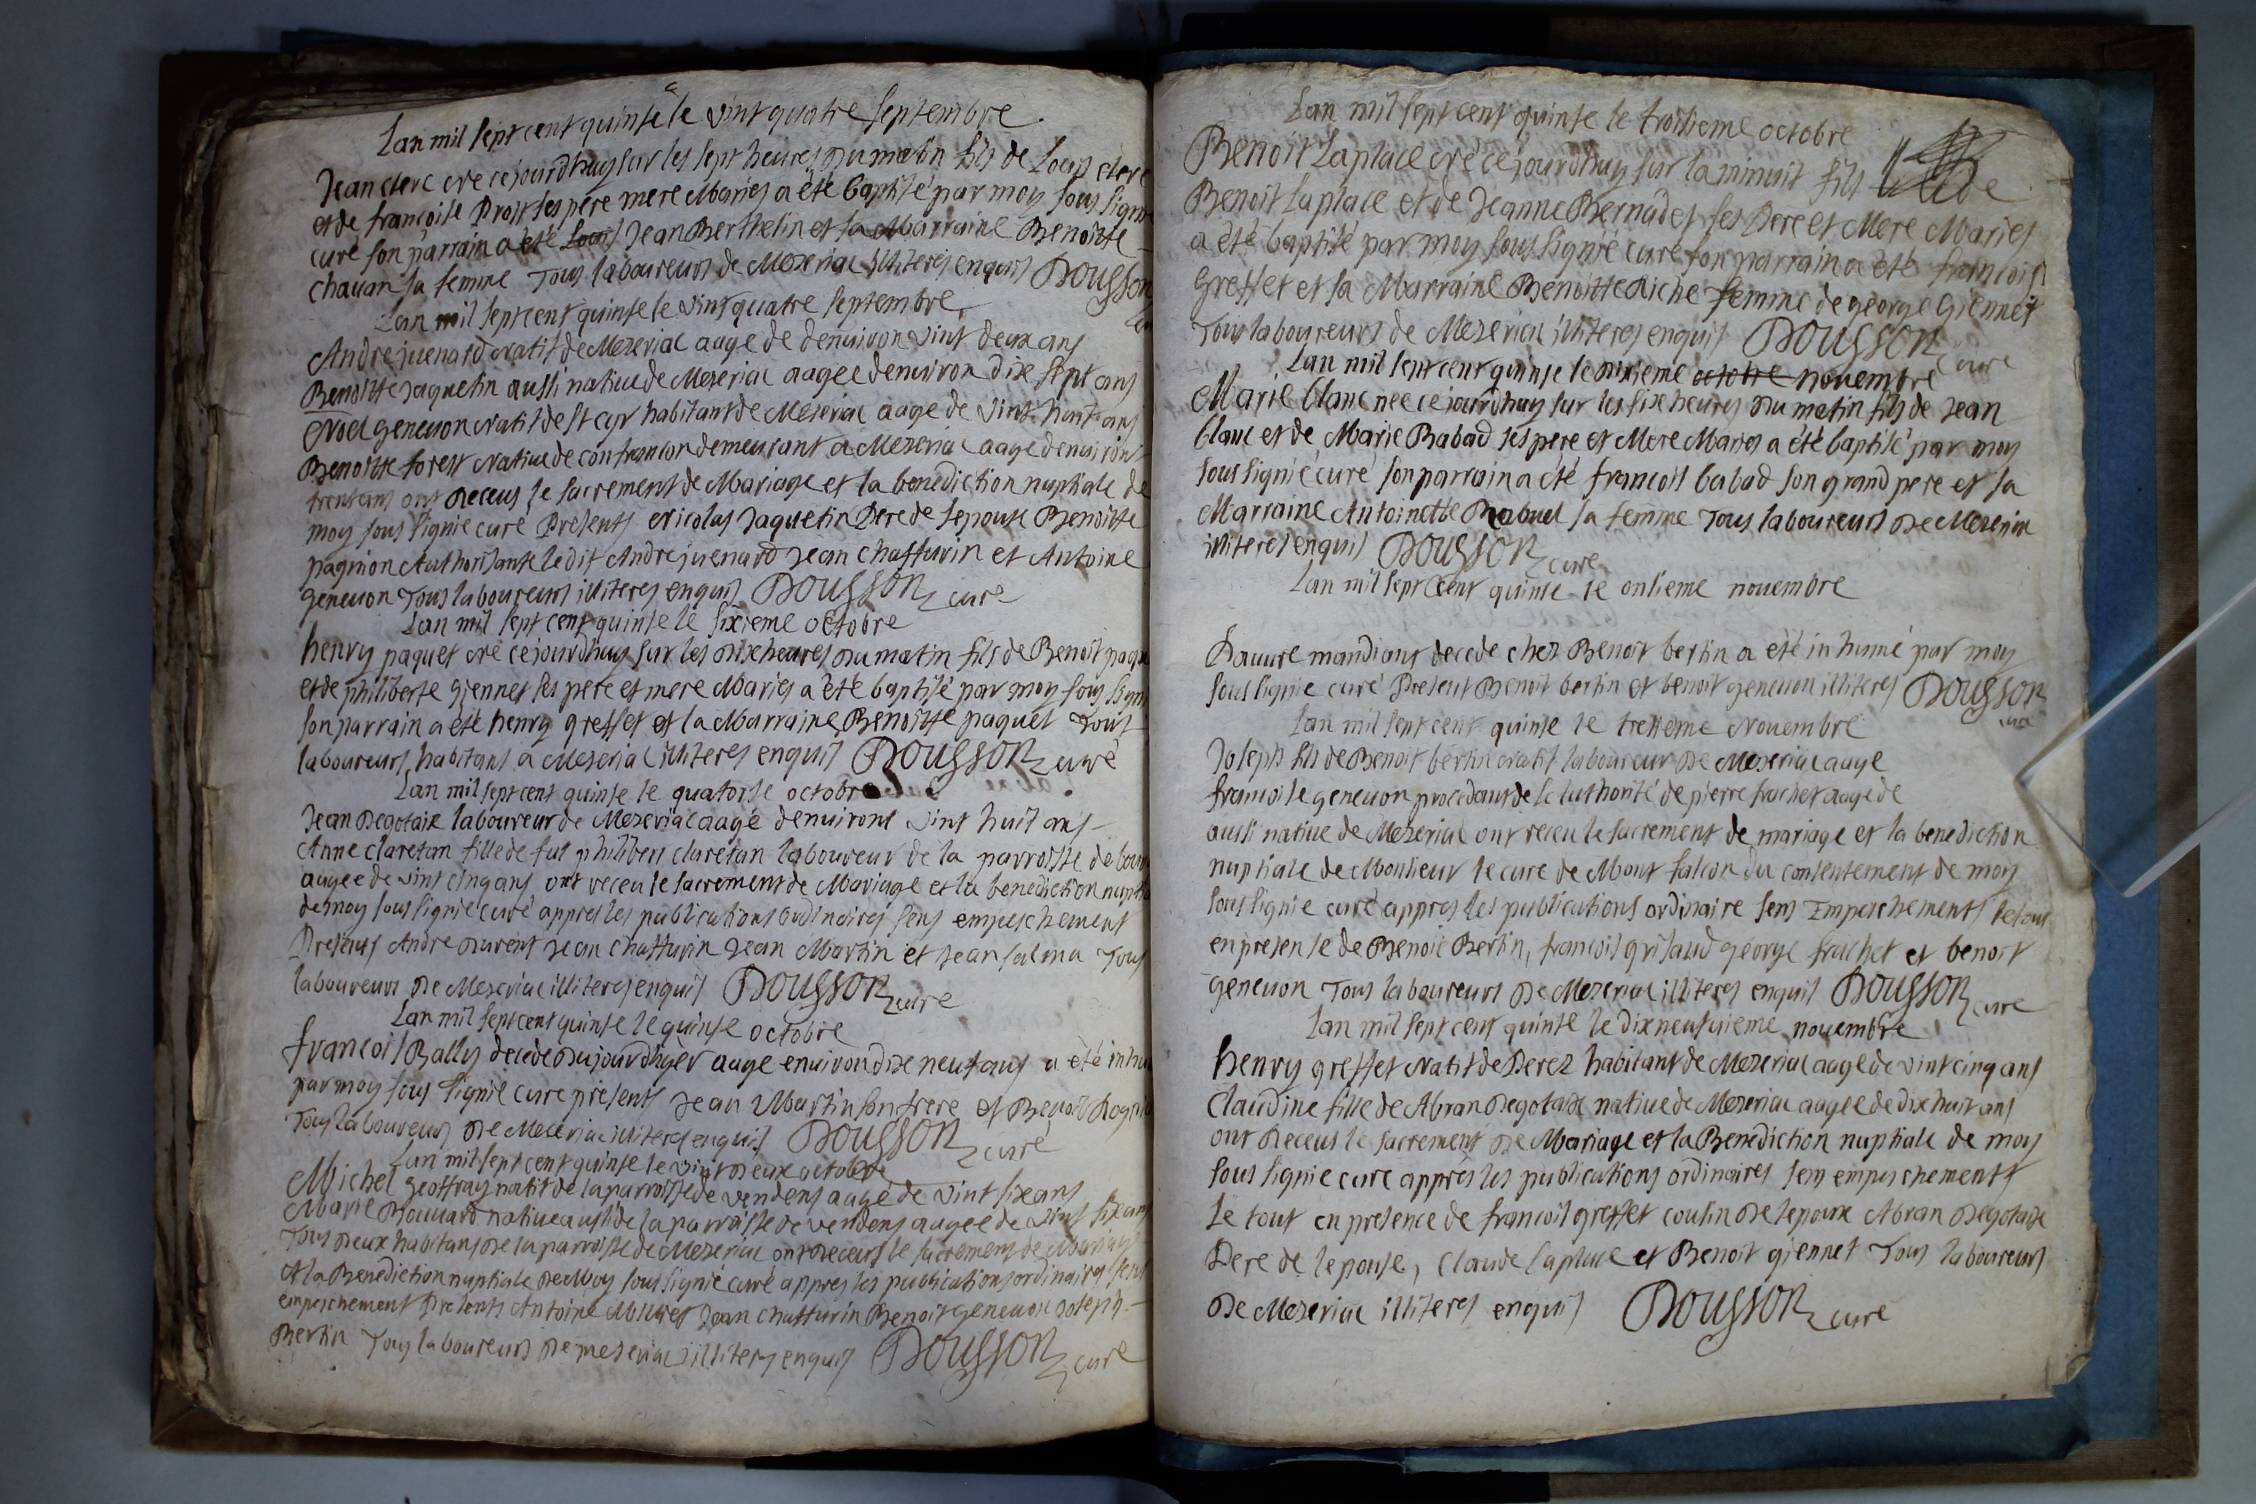 Lan mil sept cent quinse le vint quatre septembre
Jean clerc né cejourdhuy sur les sept heures du matin fils de Louis clerc
et de francoise Droit ses pere mere Mariés a été baptisé par moy sous signé
curé son parrain a été Jean Berthelin et sa Marraine Benoitte
chavan sa femme Tous laboureurs de Mezeriac illiteres enquis Dousson
Lan mil sept cent quinse le vint quatre septembre
Andre juenard Natif de Mezeriac aagé de denviron vint deux ans
Benoitte Jaquetin aussi native de Mezeriac aagee denviron dix sept ans
Noel genevon Natif de st cyr habitant de Mezeriac aagé de vint huit ans
Benoitte forest Native de confrancon demeurant a Mezeriac aagé denviron
trent ans ont Receus le sacrement de Mariage et la benediction nuptiale de
moy sous signié curé Presents Nicolas Jaquetin Pere de lepouse Benoitte
pagnion Authorisante ledit Andre juenard Jean chaffurin et Antoine
genevon Tous laboureurs illiteres enquis Dousson curé
Lan mil sept cent quinse le sixieme octobre
henry paquet né cejourdhuy sur les dix heures du matin fils de Benoit paquet
et de philiberte giennet ses pere et mere Mariés a été baptisé par moy sous signé
son parrain a été henry greffet et la Marraine Benoitte paquet Tous
laboureurs habitans a Mezeriac illiteres enquis Dousson curé
Lan mil sept cent quinse le quatorse octobre
Jean Degotaix laboureur de Mezeriac aagé denvirons vint huit ans
Anne claretan fille de fut philibert claretan laboureur de la parroisse de
aagee de vint cinq ans ont receu le sacrement de Mariage et la benediction
de moy sous signié curé appres les publications ordinaires sens empeschement
Presents Andre Durent Jean chaffurin Jean Martin et Jean Tous
laboureurs De Mezeriac illiteres enquis Dousson curé
Lan mil sept cent quinse le quinse octobre
francois Bally decede Dujourdhyer aagé environ dix neuf ans a été
par moy sous signié curé presents Jean Martin son frere et Benoit
Tous laboureurs De Mezeriac illiteres enquis Dousson curé
Lan mil sept cent quinse le vint Deux octobre
Michel geoffray natif de la parroisse de vendens aagé de vint six ans
Marie native aussi de la parroisse de vendens aagee de vint six ans
Tous Deux habitans De la parroisse de Mezeriac ont Receus le sacrement de Mariage
et la Benediction nuptiale De Moy sous signié curé appres les publications ordinaires sens
empeschement Presents Antoine Jean chaffurin Benoit genevon Joseph
Bertin Tous laboureurs De Mezeriac illiteres enquis Dousson curé
Lan mil sept cent quinse le troisieme octobre
Benoit Laplace né cejourdhuy sur la minuit fils de
Benoit Laplace et de Jeanne Bernadet ses Pere et Mere Mariés
a été baptisé par moy sous signié curé son parrain a été francois
greffet et sa Marraine Benoitte Riche femme de george Giennet
Tous laboureurs de Mezeriac illiteres enquis Dousson curé
Lan mil sept cent quinse le sixieme octobre novembre
Marie blanc née cejourdhuy sur les six heures Du matin fils de Jean
blanc et de Marie Babad ses pere et Mere Mariés a été baptisé par moy
sous signié curé son parrain a été francois babad son grand pere et sa
Marraine Antoinette sa femme Tous laboureurs De Mezeriac
illiteres enquis Dousson curé
Lan mil sept Cent quinse le onsieme novembre
Pauvre mandiant decede chez Benoit bertin a été inhumé par moy
sous signié curé Present Benoit bertin et benoit genevon illiteres Dousson
curé
Lan mil sept cent quinse le tresieme Novembre
Joseph fils de Benoit bertin Natif laboureur De Mezeriac aagé
francoise genevon procedant de la'uthorité de pierre frachet aagé de
aussi native de Mezeriac ont receu le sacrement de mariage et la benediction
nuptiale de Monsieur le cure de Mont falcon du consentement de moy
sous signié curé appres les publications ordinaire sens Empeschements le tout
en presense de Benoit Bertin, francois grisaud george frachet et benoit
genevon Tous laboureurs De Mezeriac illiteres enquis Dousson curé
Lan mil sept cent quinse le dixneufvieme novembre
henry greffet Natif de Perez habitant de Mezeriac aagé de vint cinq ans
Claudine fille de Abran Degotaix native de Mezeriac aagée de dix huit ans
ont Receus le sacrement De Mariage et la Benediction nuptiale de moy
sous signié curé appres les publications ordinaires sens empeschements
Le tout en presence de francois greffet cousin De lepoux Abran Degotaix
Pere de lepouse, Claude Laplace et Benoit giennet Tous laboureurs
De Mezeriac illiteres enquis Dousson curé